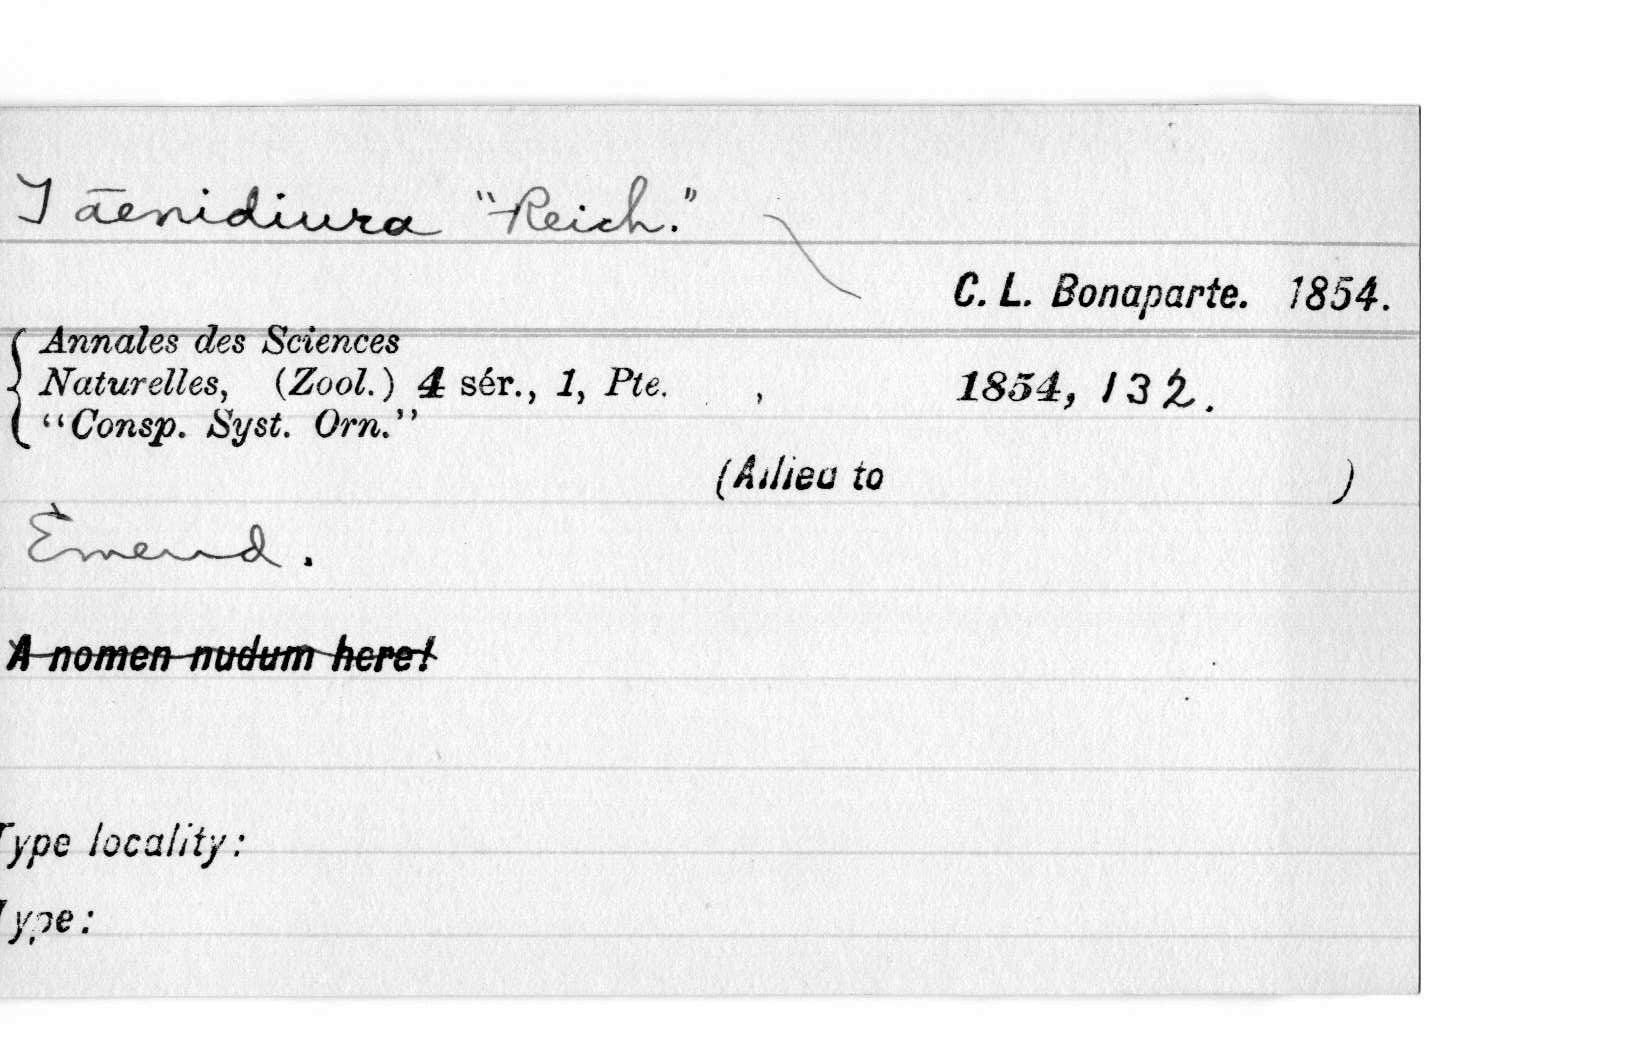 Taenidiura "Reich."
C. L. Bonaparte. 1854.
Annales des Sciences
Naturelles, (Zool.) 4 sér., 1, Pte. , 1854, 132.
"Consp. Syst. Orn."
(Allied to )
Emend.
A nomen nudum here!
Type locality:
Type: